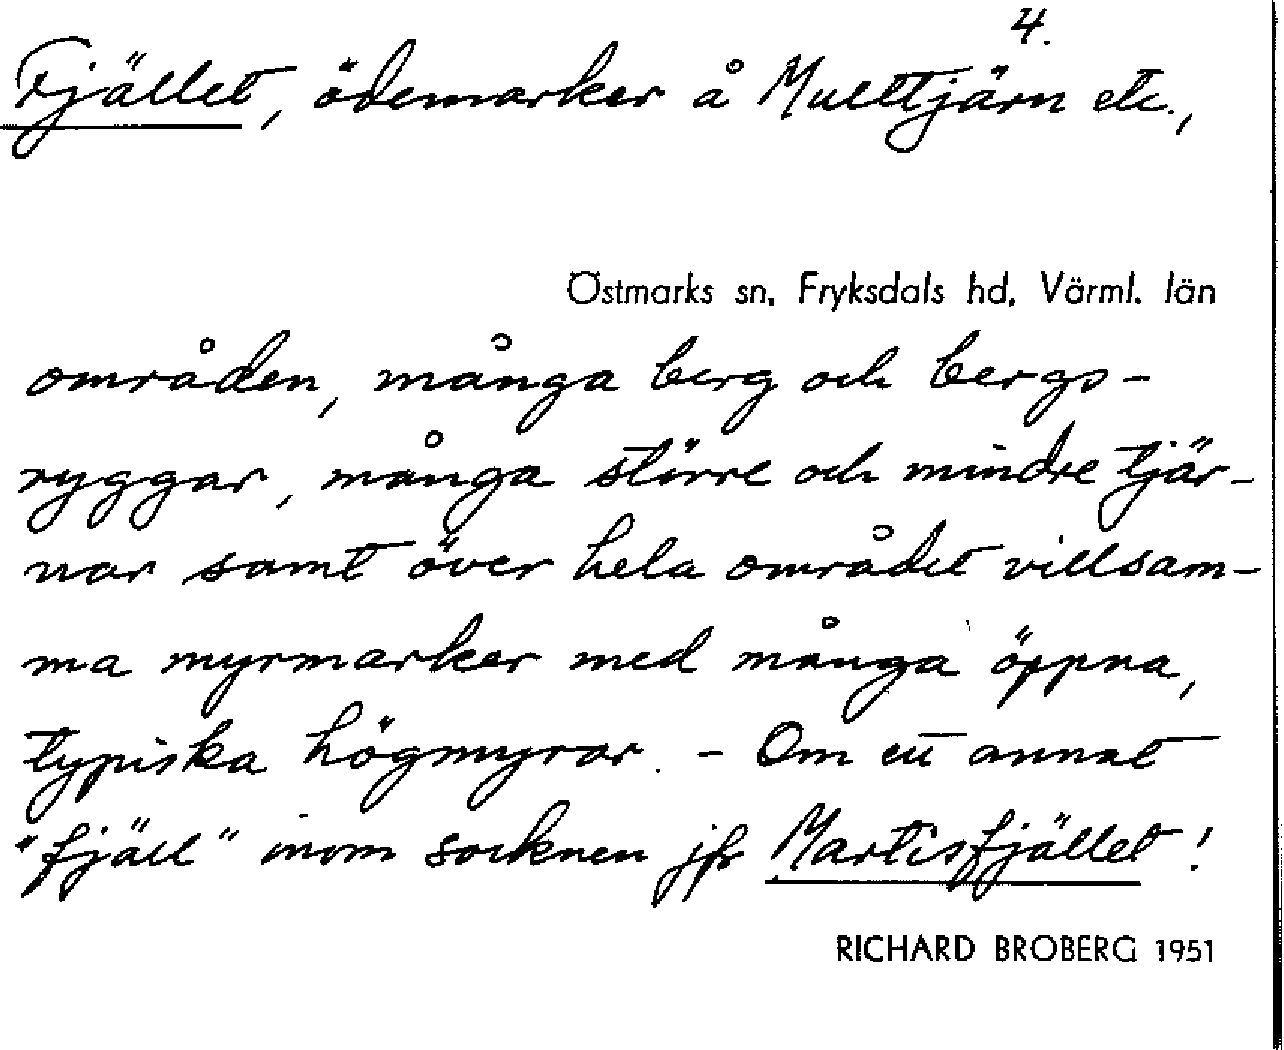 4.
Fjället, ödemarker å Multtjärn etc.,
Östmarks sn, Fryksdals hd, Värml. län
områden, många berg och bergs-
ryggar, många större och mindre tjär-
nar samt över hela området villsam-
ma myrmarker med många öppna,
typiska högmyrar. - Om ett annat
"fjäll" inom socknen jfr Martisfjället!
RICHARD BROBERG 1951